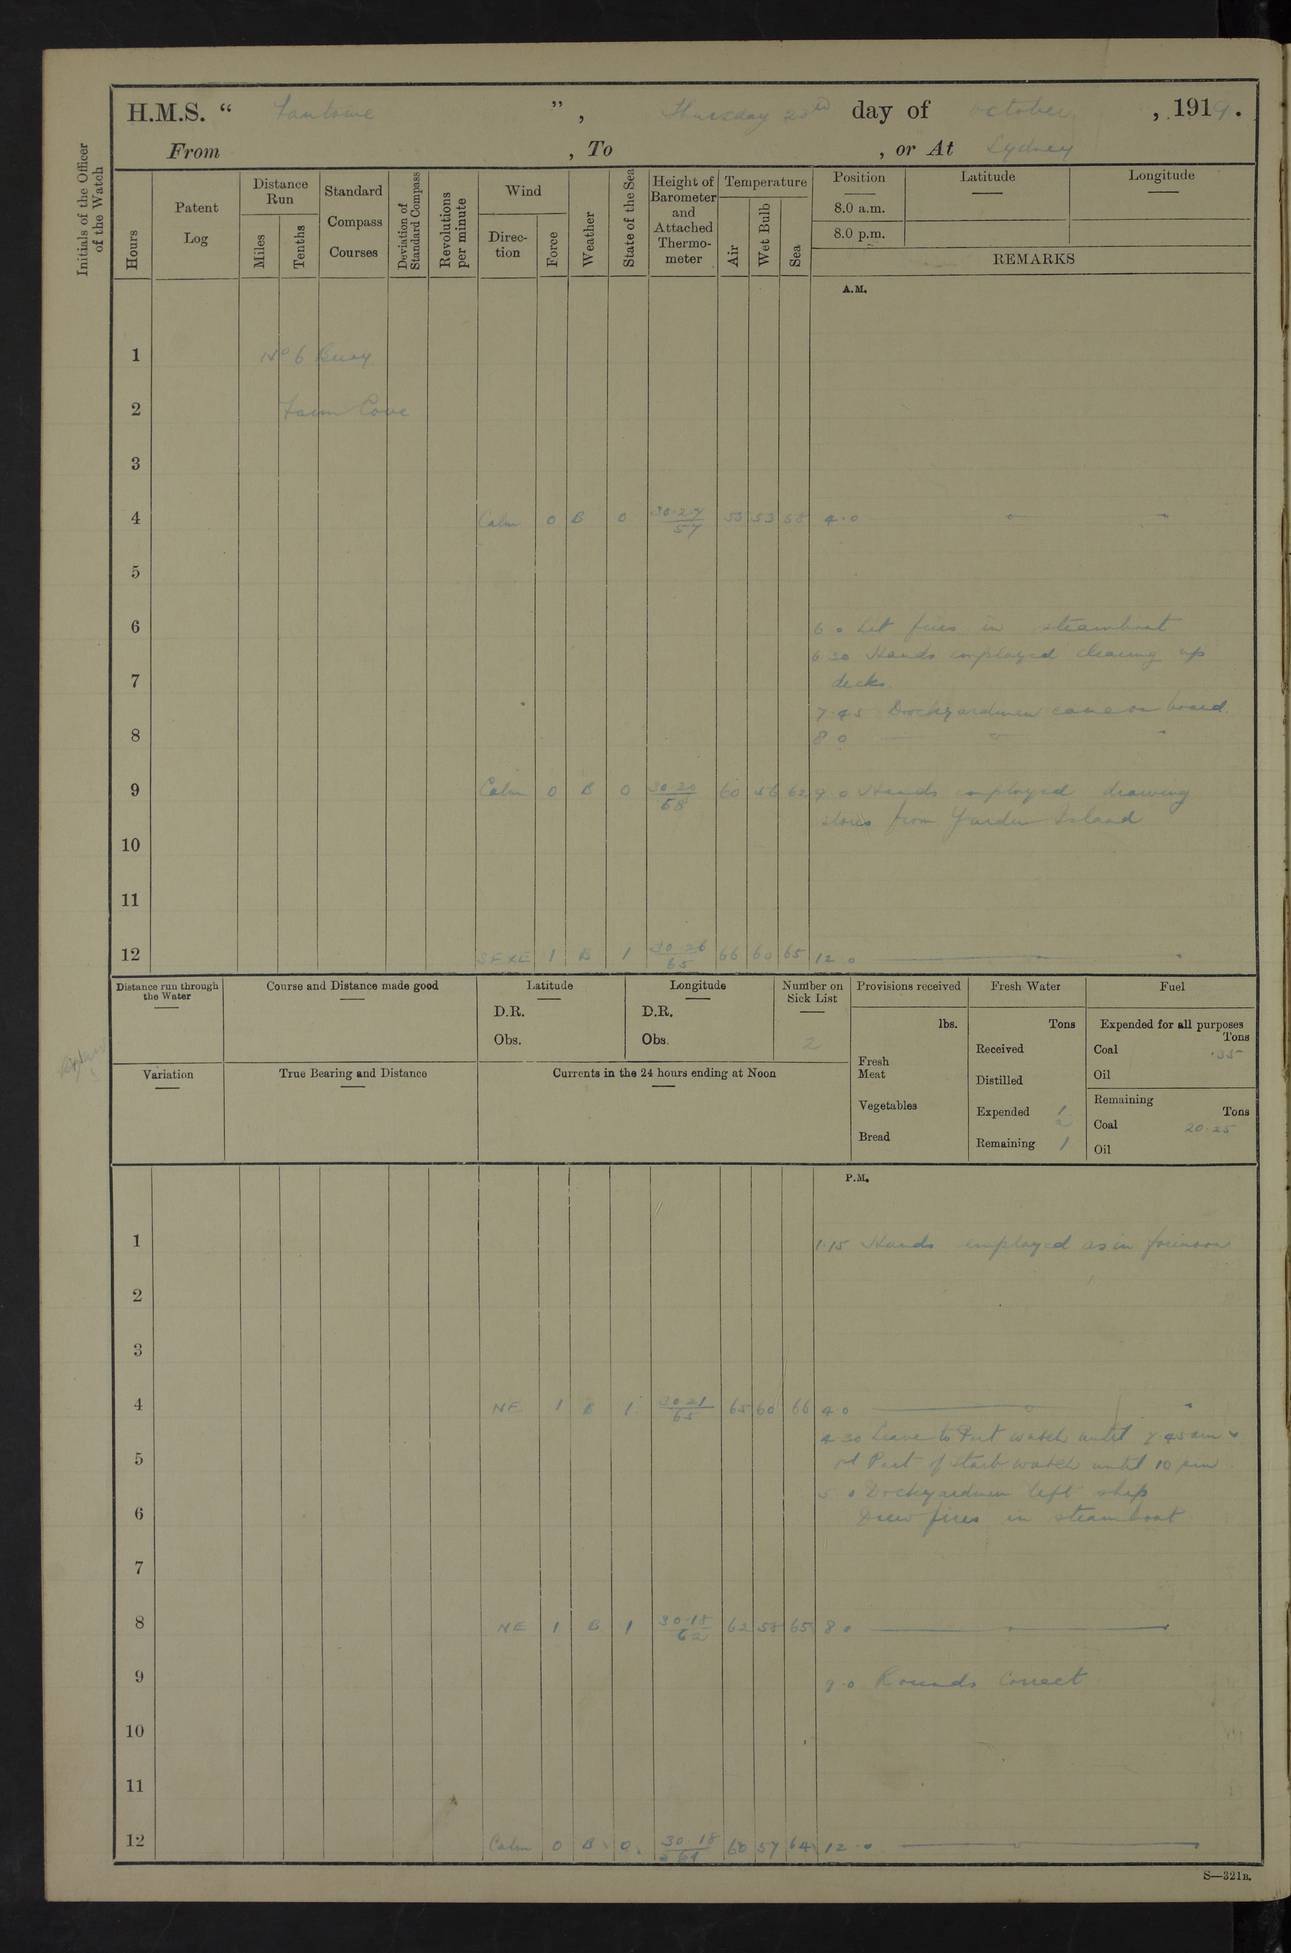 H.M.S. “ Fantome ”, Thursday 23rd day of October, 1919.
From , To , or At Sydney
Initials of the Officer of the Watch
Hours
Patent Log
Distance Run
Miles
Tenths
Standard Compass Courses
Deviation of Standard Compass
Revolutions per minute
Wind
Direction
Force
Weather
State of the Sea
Height of Barometer and Attached Thermometer
Temperature
Air
Wet Bulb
Sea
Position
8.0 a.m.
8.0 p.m.
Latitude
Longitude
REMARKS
A.M.
1 No 6 Buoy
2 Farm Cove
3
4 Calm 0 B 0 30.27 57 55 53 58 4.0
5
6 6.0 Lit fires in steamboat
6.30 Hands employed cleaning up
7 decks.
7.45 Dockyardmen came on board.
8 8.0
9 Calm 0 B 0 30.30 58 60 56 62 9.0 Hands employed drawing
stores from Garden Island
10
11
12 SExE 1 B 1 30.26 65 66 60 65 12.0
Distance run through the Water
Course and Distance made good
Latitude
D.R.
Obs.
Longitude
D.R.
Obs.
Number on Sick List
2
Variation
True Bearing and Distance
Currents in the 24 hours ending at Noon
Provisions received
lbs.
Fresh Meat
Vegetables
Bread
Fresh Water
Tons
Received
Distilled
Expended 1/2
Remaining 1
Fuel
Expended for all purposes
Tons
Coal .35
Oil
Remaining
Tons
Coal 20.25
Oil
P.M.
1 1.15 Hands employed as in forenoon
2
3
4 NE 1 B 1 30.21 65 65 60 66 4.0
4.30 Leave to Port watch until 7.45 am &
5 1st Part of Starb watch until 10 pm.
5.0 Dockyardmen left ship
6 Drew fires in steamboat
7
8 NE 1 B 1 30.18 62 62 58 65 8.0
9 9.0 Rounds Correct
10
11
12 Calm 0 B 0 30.18 61 60 57 64 12.0
S—321B.